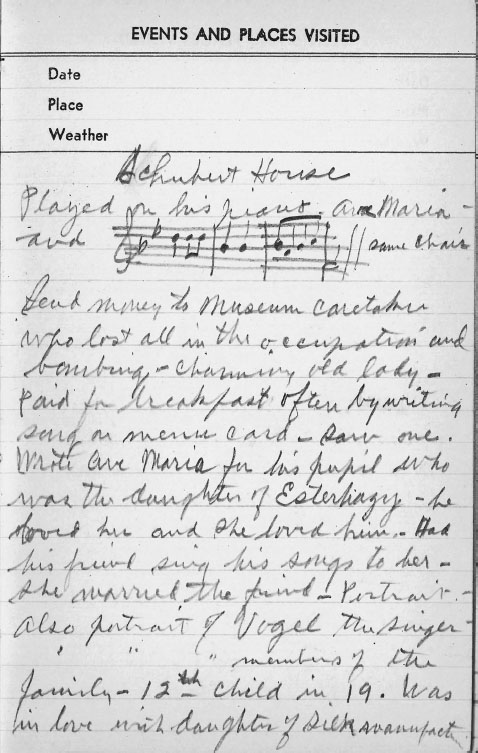 EVENTS AND PLACES VISITED
Date
Place
Weather
Schubert House
Played on his piano. Ave Maria -
and same chair
Send money to Museum caretaker
who lost all in the occupation and
bombing - charming old lady -
Paid for breakfast often by writing
song on menu card - saw one.
Wrote Ave Maria for his pupil who
was the daughter of Esterhazy - he
loved her and she loved him. - Had
his friend sing his songs to her -
she married the friend - Portrait. -
Also portrait of Vogel the singer -
" " " members of the
family - 12th child in 19. Was
in love with daughter of Silk manufact